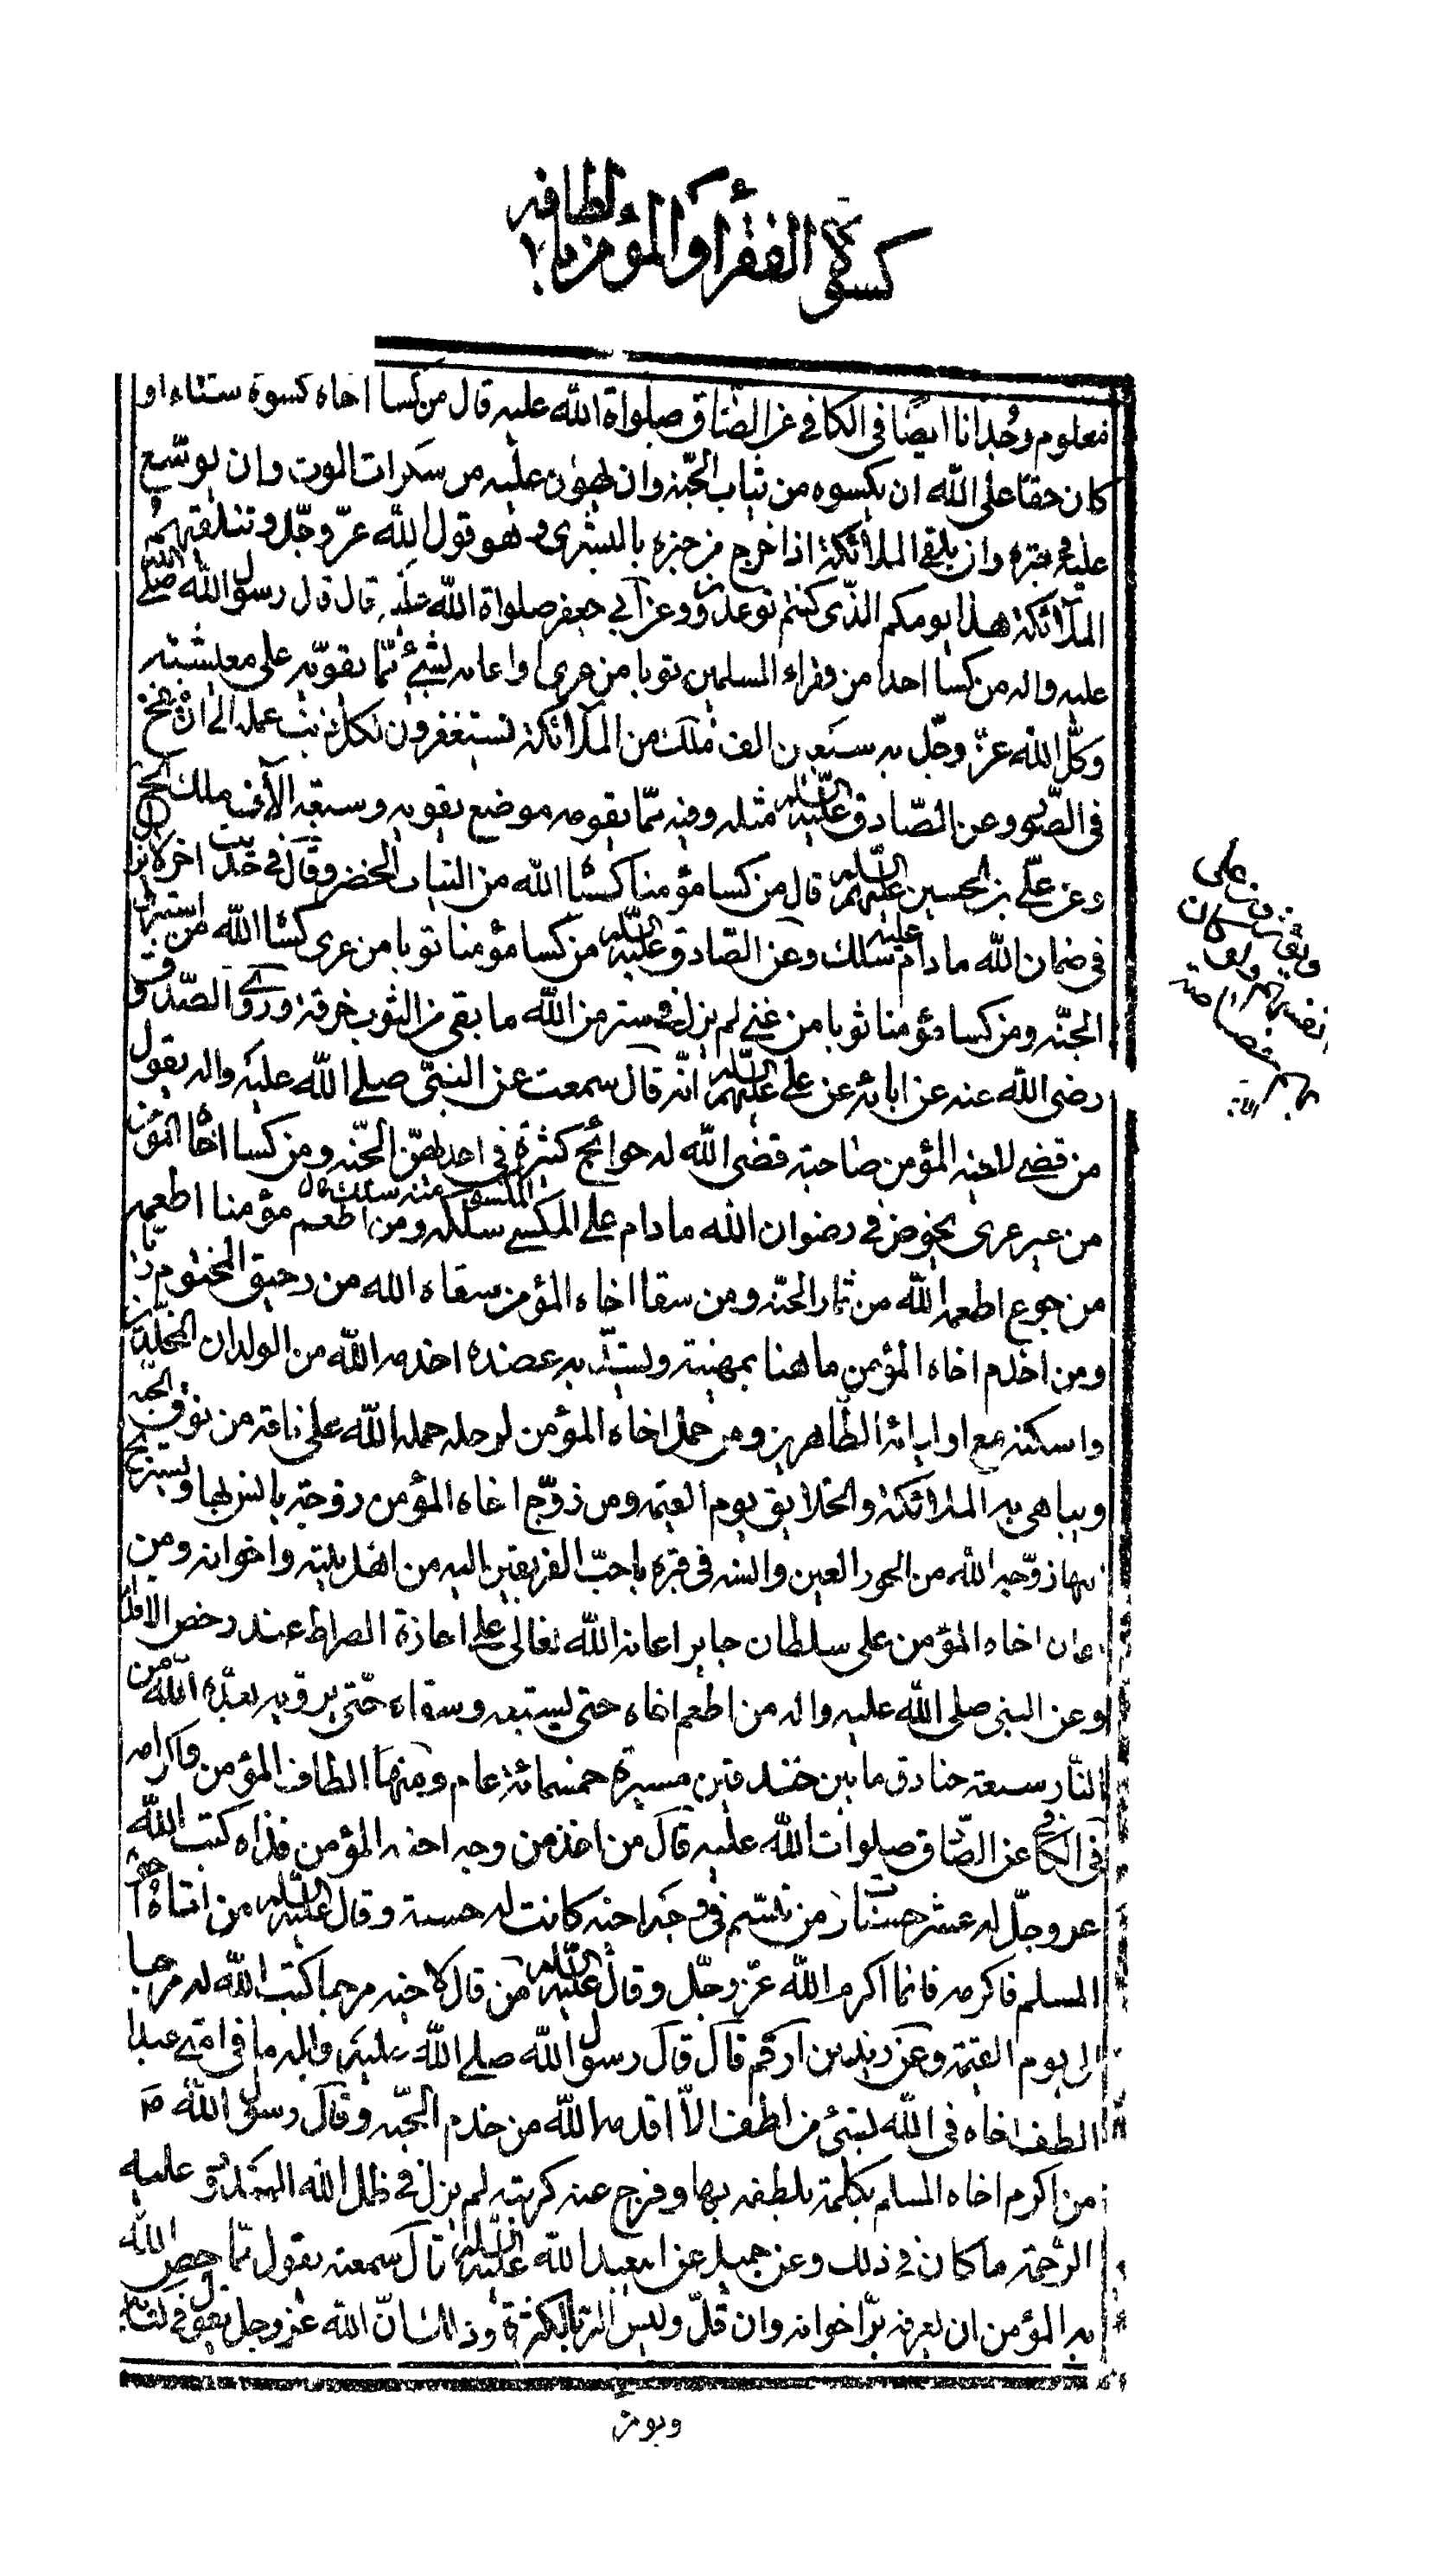 كسوة الفقراء والمؤمن بالطافه
معلوم وجدانا ايضا فى الكافي عن الصادق صلواة الله عليه قال من كسا اخاه كسوة ستاء او
كان حقا على الله ان يكسوه من ثياب الجنه وان يهون عليه من سكرات الموت وان يوسع
عليه فى قبره وان يلقى الملائكة اذا خرج من قبره بالبشرى وهو قول الله عز وجل وتتلقيهم
الملائكة هذا يومكم الذى كنتم توعدون وعن ابي جعفر صلواة الله عليه قال قال رسول الله صلى الله
عليه واله من كسا احدا من فقراء المسلمين ثوبا من عرى او اعانه بشئ مما يقويه على معيشته
وكل الله عز وجل به سبعين الف ملك من الملائكة يستغفرون لكل ذنب عمله الى ان ينفخ
فى الصور وعن الصادق عليه السلم مثله وفيه مما يقوته موضع يقويه وسبعة الاف ملك الخ
وعن علي بن الحسين عليهم السلم قال من كسا مؤمنا كساه الله من الثياب الخضر وقال في حديث اخر لا يزال
فى ضمان الله مادام عليه سلك وعن الصادق عليه السلم من كسا مؤمنا ثوبا من عرى كساه الله من استبرق
الجنه ومن كسا مؤمنا ثوبا من غنى لم يزل في ستر من الله ما بقى من الثوب خرقة وروى الصدوق
رضى الله عنه عن ابائه عن على عليهم السلم انه قال سمعت عن النبى صلى الله عليه واله يقول
من قضى لاخيه المؤمن حاجته قضى الله له حوائج كثيرة في احديهن الجنه ومن كسا اخاه المؤمن
من غير عرى يخوض في رضوان الله مادام على المكسي سلكه ومن اطعم مؤمنا اطعمه
من جوع اطعمه الله من ثمار الجنه ومن سقا اخاه المؤمن سقاه الله من رحيق المختوم ريا
ومن اخدم اخاه المؤمن ماهنا بمهنته ويشد به عضده اخدمه الله من الولدان المخلدين
واسكنه مع اوليائه الطاهرين ومن حمل اخاه المؤمن لرحله حمله الله على ناقة من نوق الجنه
ويباهى به الملائكة والخلايق يوم القيمه ومن زوج اخاه المؤمن زوجة يانس بها ويستريح
اليها زوجه الله من الحور العين وانسه فى قبره باحب الفريقين اليه من اهل بيته واخوانه ومن
اعان اخاه المؤمن على سلطان جاير اعانه الله تعالى على اجازة الصراط عند دحض الاقدام
وعن النبى صلى الله عليه واله من اطعم اخاه حتى يشبعه وسقاه حتى يرويه بعده الله من
النار سبعة خنادق ما بين خندقين مسيرة خمسمائة عام ومنها الطاف المؤمن واكرامه
فى الكافى عن الصادق صلوات الله عليه قال من اخذ من وجه اخيه المؤمن قذاه كتب الله
عز وجل له عشر حسنات ومن تبسم في وجه اخيه كانت له حسنة وقال عليه السلم من اتاه اخوه
المسلم فاكرمه فانما اكرم الله عز وجل وقال عليه السلم من قال لاخيه مرحبا كتب الله له مرحبا
الى يوم القيمة وعن زيد بن ارقم قال قال رسول الله صلى الله عليه واله ما في امتى عبد
الطف اخاه فى الله بشئ من لطف الا اخدمه الله من خدم الجنه وقال رسول الله ص
من اكرم اخاه المسلم بكلمة يلطفه بها وفرج عنه كربته لم يزل في ظل الله الممدود عليه
الرحمة ما كان في ذلك وعن جميل عن ابيعبد الله عليه السلم قال سمعته يقول مما خص الله
به المؤمن ان يعرفه بر اخوانه وان قل وليس البر بالكثرة وذلك ان الله عز وجل يقول في كتابه
ويؤثرون على
انفسهم ولو كان
بهم خصاصة
الآية
ويؤثر